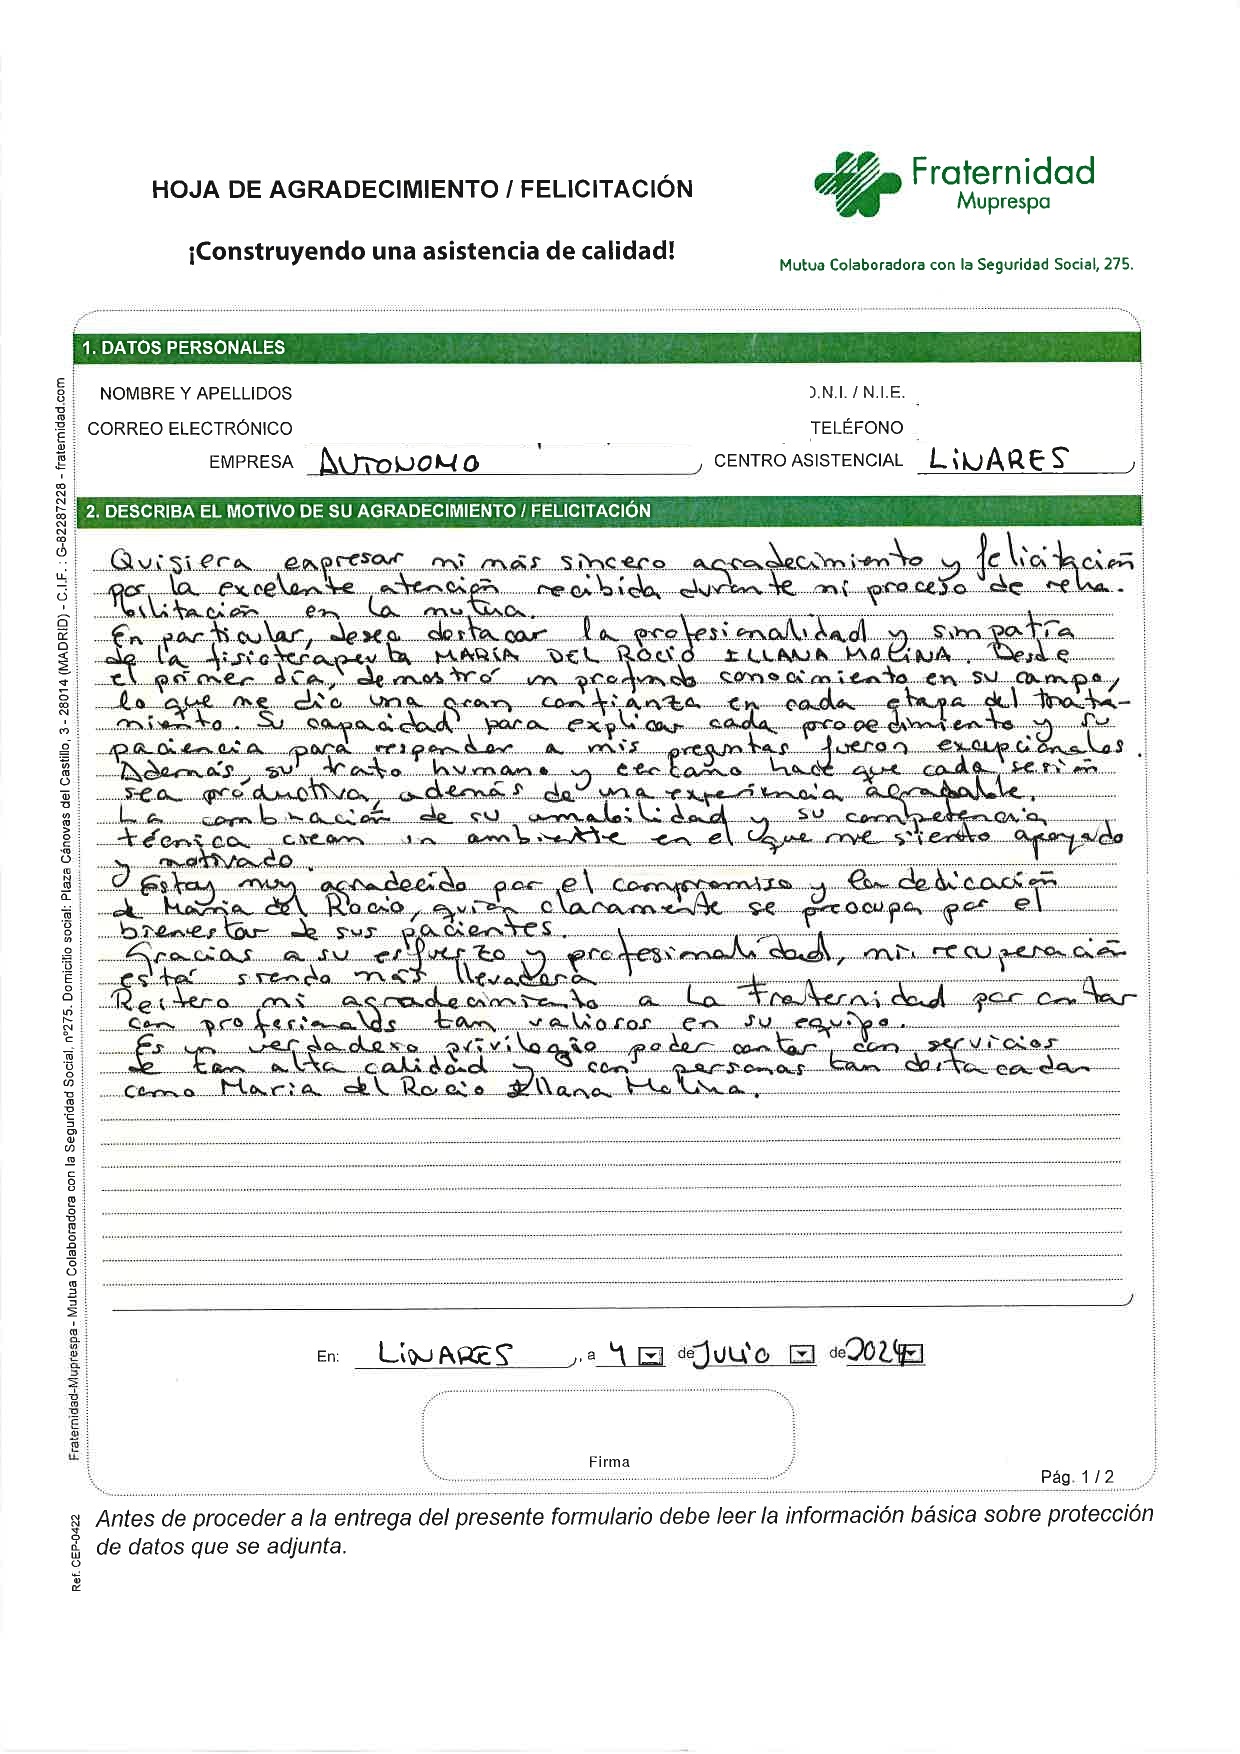 HOJA DE AGRADECIMIENTO / FELICITACIÓN
¡Construyendo una asistencia de calidad!
Fraternidad
Muprespa
Mutua Colaboradora con la Seguridad Social, 275.
1. DATOS PERSONALES
NOMBRE Y APELLIDOS
D.N.I. / N.I.E.
CORREO ELECTRÓNICO
TELÉFONO
EMPRESA AUTONOMO
CENTRO ASISTENCIAL LINARES
2. DESCRIBA EL MOTIVO DE SU AGRADECIMIENTO / FELICITACIÓN
Quisiera expresar mi más sincero agradecimiento y felicitación
por la excelente atención recibida durante mi proceso de reha-
bilitación en la mutua.
En particular, deseo destacar la profesionalidad y simpatía
de la fisioterapeuta MARIA DEL ROCIO ILLANA MOLINA. Desde
el primer día, demostró un profundo conocimiento en su campo,
lo que me dio una gran confianza en cada etapa del trata-
miento. Su capacidad para explicar cada procedimiento y su
paciencia para responder a mis preguntas fueron excepcionales.
Además, su trato humano y cercano hace que cada sesión
sea productiva, además de una experiencia agradable.
La combinación de su amabilidad y su competencia
técnica crean un ambiente en el que me siento apoyado
y motivado.
Estoy muy agradecido por el compromiso y la dedicación
de Maria del Rocio, quien claramente se preocupa por el
bienestar de sus pacientes.
Gracias a su esfuerzo y profesionalidad, mi recuperación
está siendo más llevadera
Reitero mi agradecimiento a La Fraternidad por contar
con profesionales tan valiosos en su equipo.
Es un verdadero privilegio poder contar con servicios
de tan alta calidad y con personas tan destacadas
como Maria del Rocio Illana Molina.
En: LINARES, a 4 de Julio de 2024
Firma
Pág. 1 / 2
Antes de proceder a la entrega del presente formulario debe leer la información básica sobre protección
de datos que se adjunta.
Fraternidad-Muprespa - Mutua Colaboradora con la Seguridad Social, nº275. Domicilio social: Plaza Cánovas del Castillo, 3 - 28014 (MADRID) - C.I.F. : G-82287228 - fraternidad.com
Ref. CEP-0422